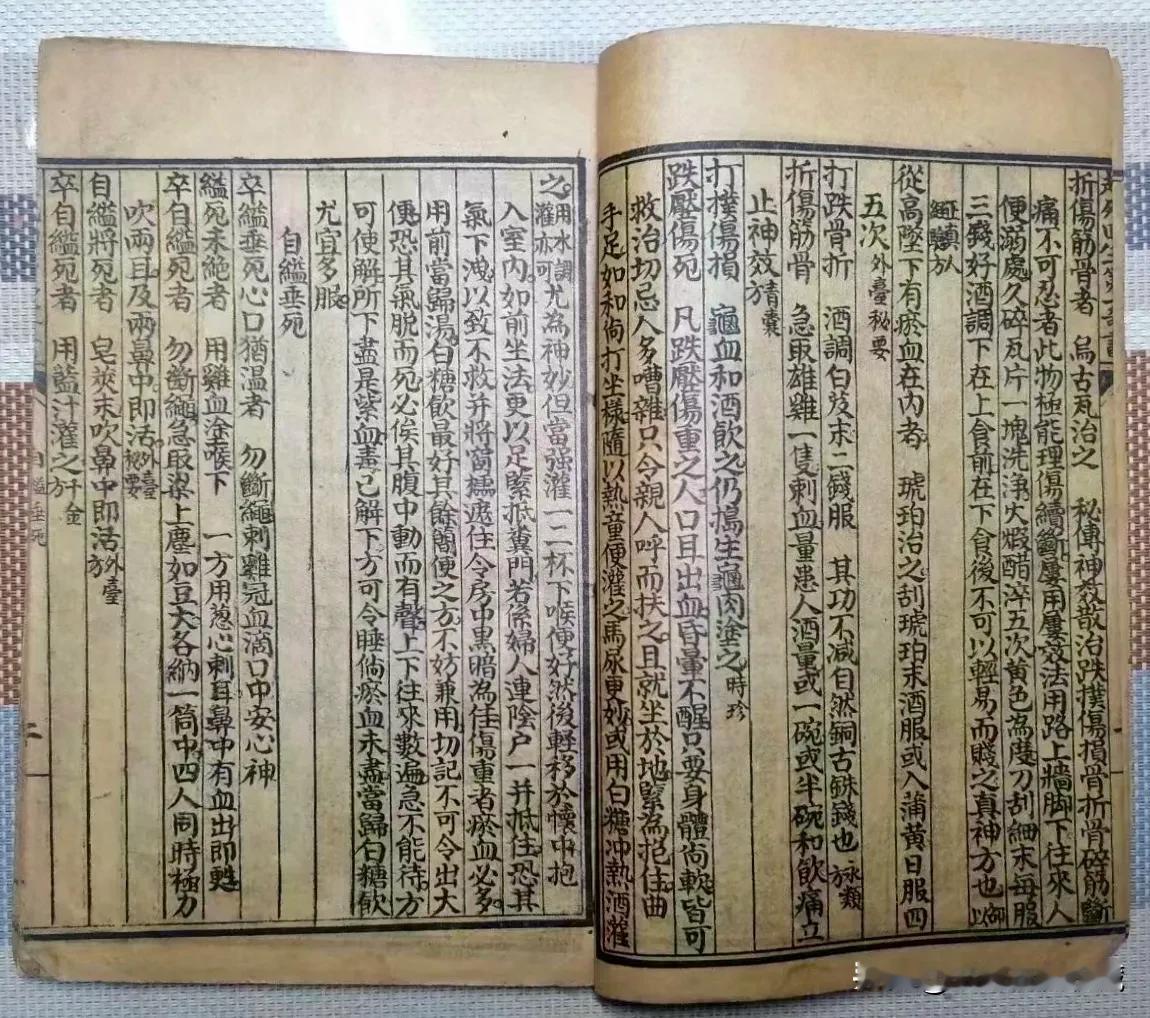 折傷筋骨者　烏古瓦治之　秘傳神效散治跌撲傷損骨折骨碎筋斷
痛不可忍者此物極能理傷續斷屢用屢效法用路上牆脚下往來人
便溺處久碎瓦片一塊洗淨火煅醋淬五次黃色為度刀刮細末每服
三錢好酒調下在上食前在下食後不可以輕易而賤之真神方也
從高墜下有瘀血在內者　琥珀治之刮琥珀末酒服或入蒲黃日服四
五次外臺秘要
打跌骨折　酒調白芨末二錢服　其功不減自然銅古銖錢也
折傷筋骨　急取雄雞一隻刺血量患人酒量或一碗或半碗和飲痛立
止神效青囊
打撲傷損　龜血和酒飲之仍搗生龜肉塗之時珍
跌壓傷死　凡跌壓傷重之人口目出血昏暈不醒只要身體尚軟皆可
救治切忌人多嘈雜只令親人呼而扶之且就坐於地緊為抱住曲
手足如和尚打坐樣隨以熱童便灌之馬尿更妙或用白糖冲熱酒灌
之用水調灌亦可尤為神妙但當强灌一二杯下喉便好然後輕移於懷中抱
入室內如前坐法更以足緊抵糞門若係婦人連陰户一并抵住恐其
氣下洩以致不救并將窗櫺遮住令房中黑暗為佳傷重者瘀血必多
用前當歸湯白糖飲最好其餘簡便之方不妨兼用切記不可令出大
便恐其氣脫而死必俟其腹中動而有聲上下往來數遍急不能待方
可使解所下盡是紫血毒已解下方可令睡倘瘀血未盡當歸白糖飲
尤宜多服
自縊垂死
卒縊垂死心口猶溫者　勿斷繩刺雞冠血滴口中安心神
縊死未絕者　用雞血塗喉下　一方用葱心刺耳鼻中有血出即甦
卒自縊死者　勿斷繩急取梁上塵如豆大各納一筒中四人同時極力
吹兩耳及兩鼻中即活外臺秘要
自縊將死者　皂莢末吹鼻中即活外臺方
卒自縊死者　用藍汁灌之千金方